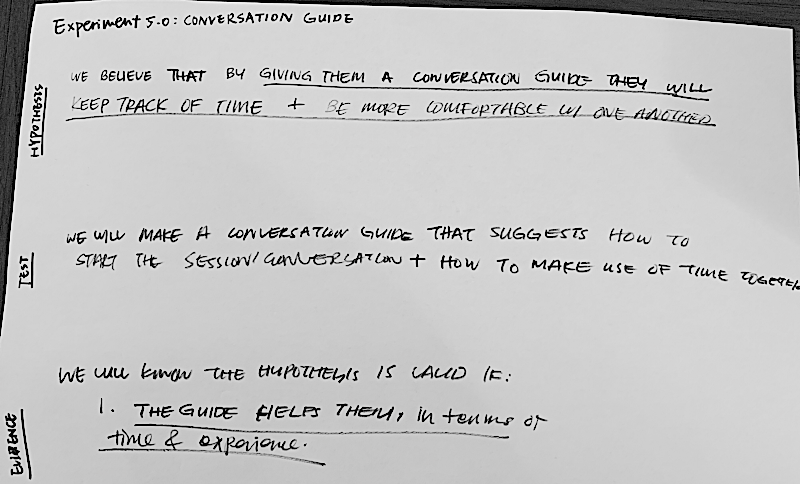 Experiment 5.0: CONVERSATION GUIDE
HYPOTHESIS
WE BELIEVE THAT BY GIVING THEM A CONVERSATION GUIDE THEY WILL
KEEP TRACK OF TIME + BE MORE COMFORTABLE W/ ONE ANOTHER
TEST
WE WILL MAKE A CONVERSATION GUIDE THAT SUGGESTS HOW TO
START THE SESSION/CONVERSATION + HOW TO MAKE USE OF TIME TOGETHER
EVIDENCE
WE WILL KNOW THE HYPOTHESIS IS VALID IF:
1. THE GUIDE HELPS THEM, in terms of
time & experience.